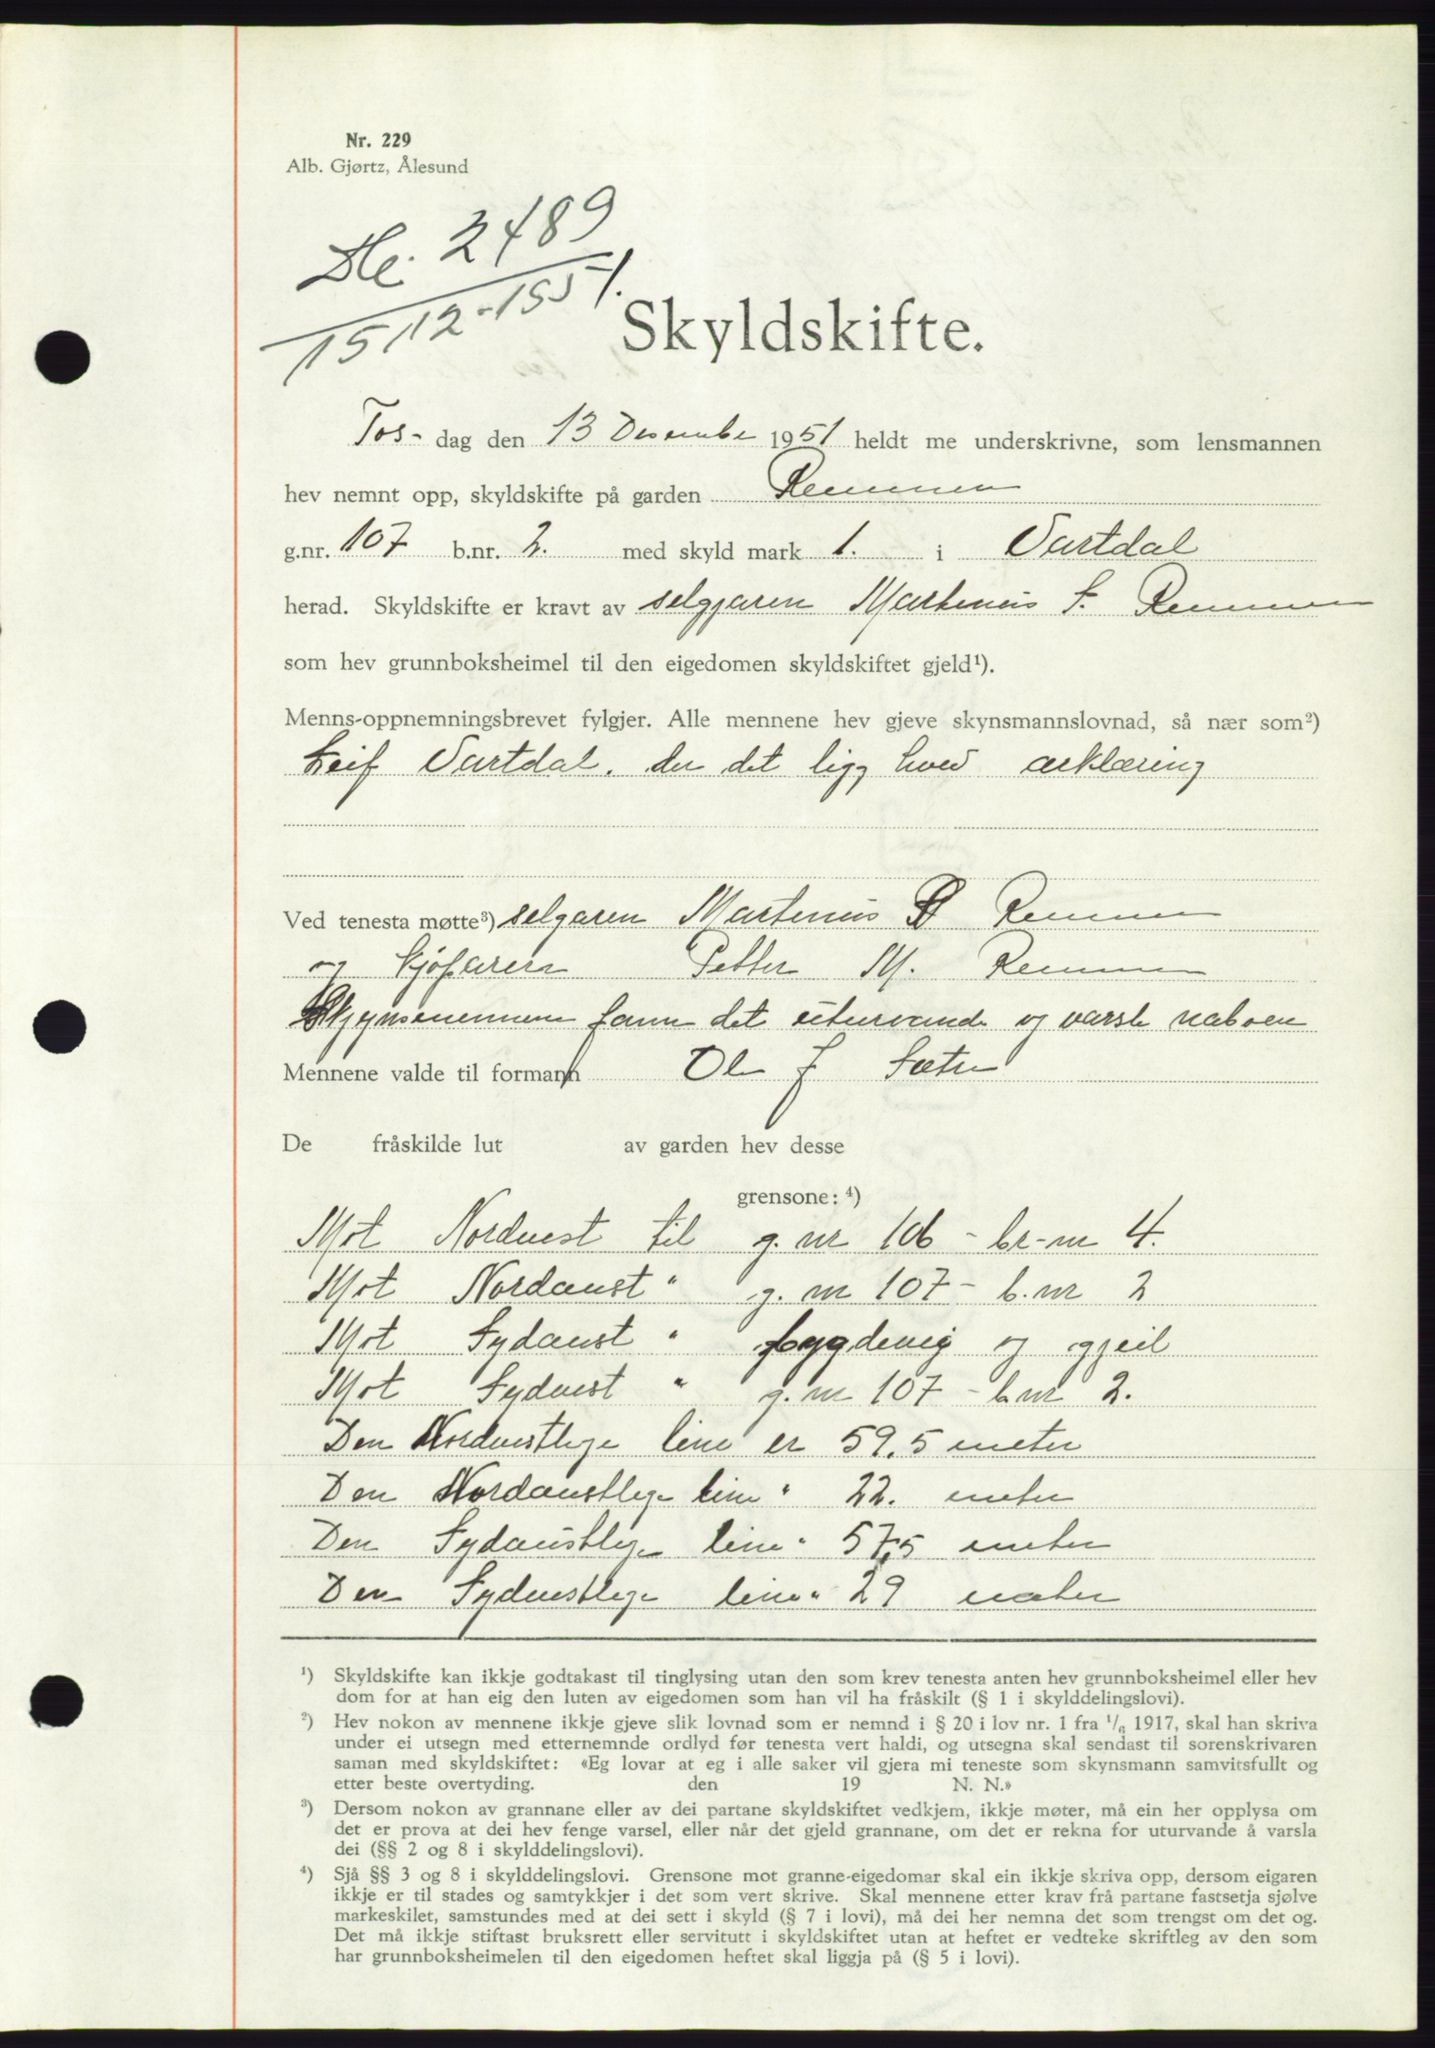 Nr. 229
Alb. Gjørtz, Ålesund
2489
15/12-1951.
Skyldskifte.
Tos- dag den 13 Desember 1951 heldt me underskrivne, som lensmannen
hev nemnt opp, skyldskifte på garden Remmen
g.nr. 107 b.nr. 2. med skyld mark 1. i Vartdal
herad. Skyldskifte er kravt av selgjaren Martinus S. Remmen
som hev grunnboksheimel til den eigedomen skyldskiftet gjeld¹).
Menns-oppnemningsbrevet fylgjer. Alle mennene hev gjeve skynsmannslovnad, så nær som²)
Leif Vartdal. der det ligg hved ærklæring
Ved tenesta møtte³) selgaren Martinus Remmen
og kjøparen Petter M. Remmen
Skjynsmennene fann det uturvande og varsle naboen
Mennene valde til formann Ole J Sætre
De fråskilde lut av garden hev desse
grensone: ⁴)
Mot Nordvest til g. nr 106 - br-nr 4.
Mot Nordaust " g. nr 107 - b. nr 2
Mot Sydaust " bygdeveg og gjeil
Mot Sydvest " g. nr 107 - b. nr 2.
Den Nordvestlege line er 59.5 meter
Den Nordaustlege line " 22. meter
Den Sydaustlege line " 57,5 meter
Den Sydvestlege line " 29 meter
¹) Skyldskifte kan ikkje godtakast til tinglysing utan den som krev tenesta anten hev grunnboksheimel eller hev
dom for at han eig den luten av eigedomen som han vil ha fråskilt (§ 1 i skylddelingslovi).
²) Hev nokon av mennene ikkje gjeve slik lovnad som er nemnd i § 20 i lov nr. 1 fra 1/6 1917, skal han skriva
under ei utsegn med etternemnde ordlyd før tenesta vert haldi, og utsegna skal sendast til sorenskrivaren
saman med skyldskiftet: «Eg lovar at eg i alle saker vil gjera mi teneste som skynsmann samvitsfullt og
etter beste overtyding. den 19 N. N.»
³) Dersom nokon av grannane eller av dei partane skyldskiftet vedkjem, ikkje møter, må ein her opplysa om
det er prova at dei hev fenge varsel, eller når det gjeld grannane, om det er rekna for uturvande å varsla
dei (§§ 2 og 8 i skylddelingslovi).
⁴) Sjå §§ 3 og 8 i skylddelingslovi. Grensone mot granne-eigedomar skal ein ikkje skriva opp, dersom eigaren
ikkje er til stades og samtykkjer i det som vert skrive. Skal mennene etter krav frå partane fastsetja sjølve
markeskilet, samstundes med at dei sett i skyld (§ 7 i lovi), må dei her nemna det som trengst om det og.
Det må ikkje stiftast bruksrett eller servitutt i skyldskiftet utan at heftet er vedteke skriftleg av den som
har grunnboksheimelen til den eigedomen heftet skal liggja på (§ 5 i lovi).